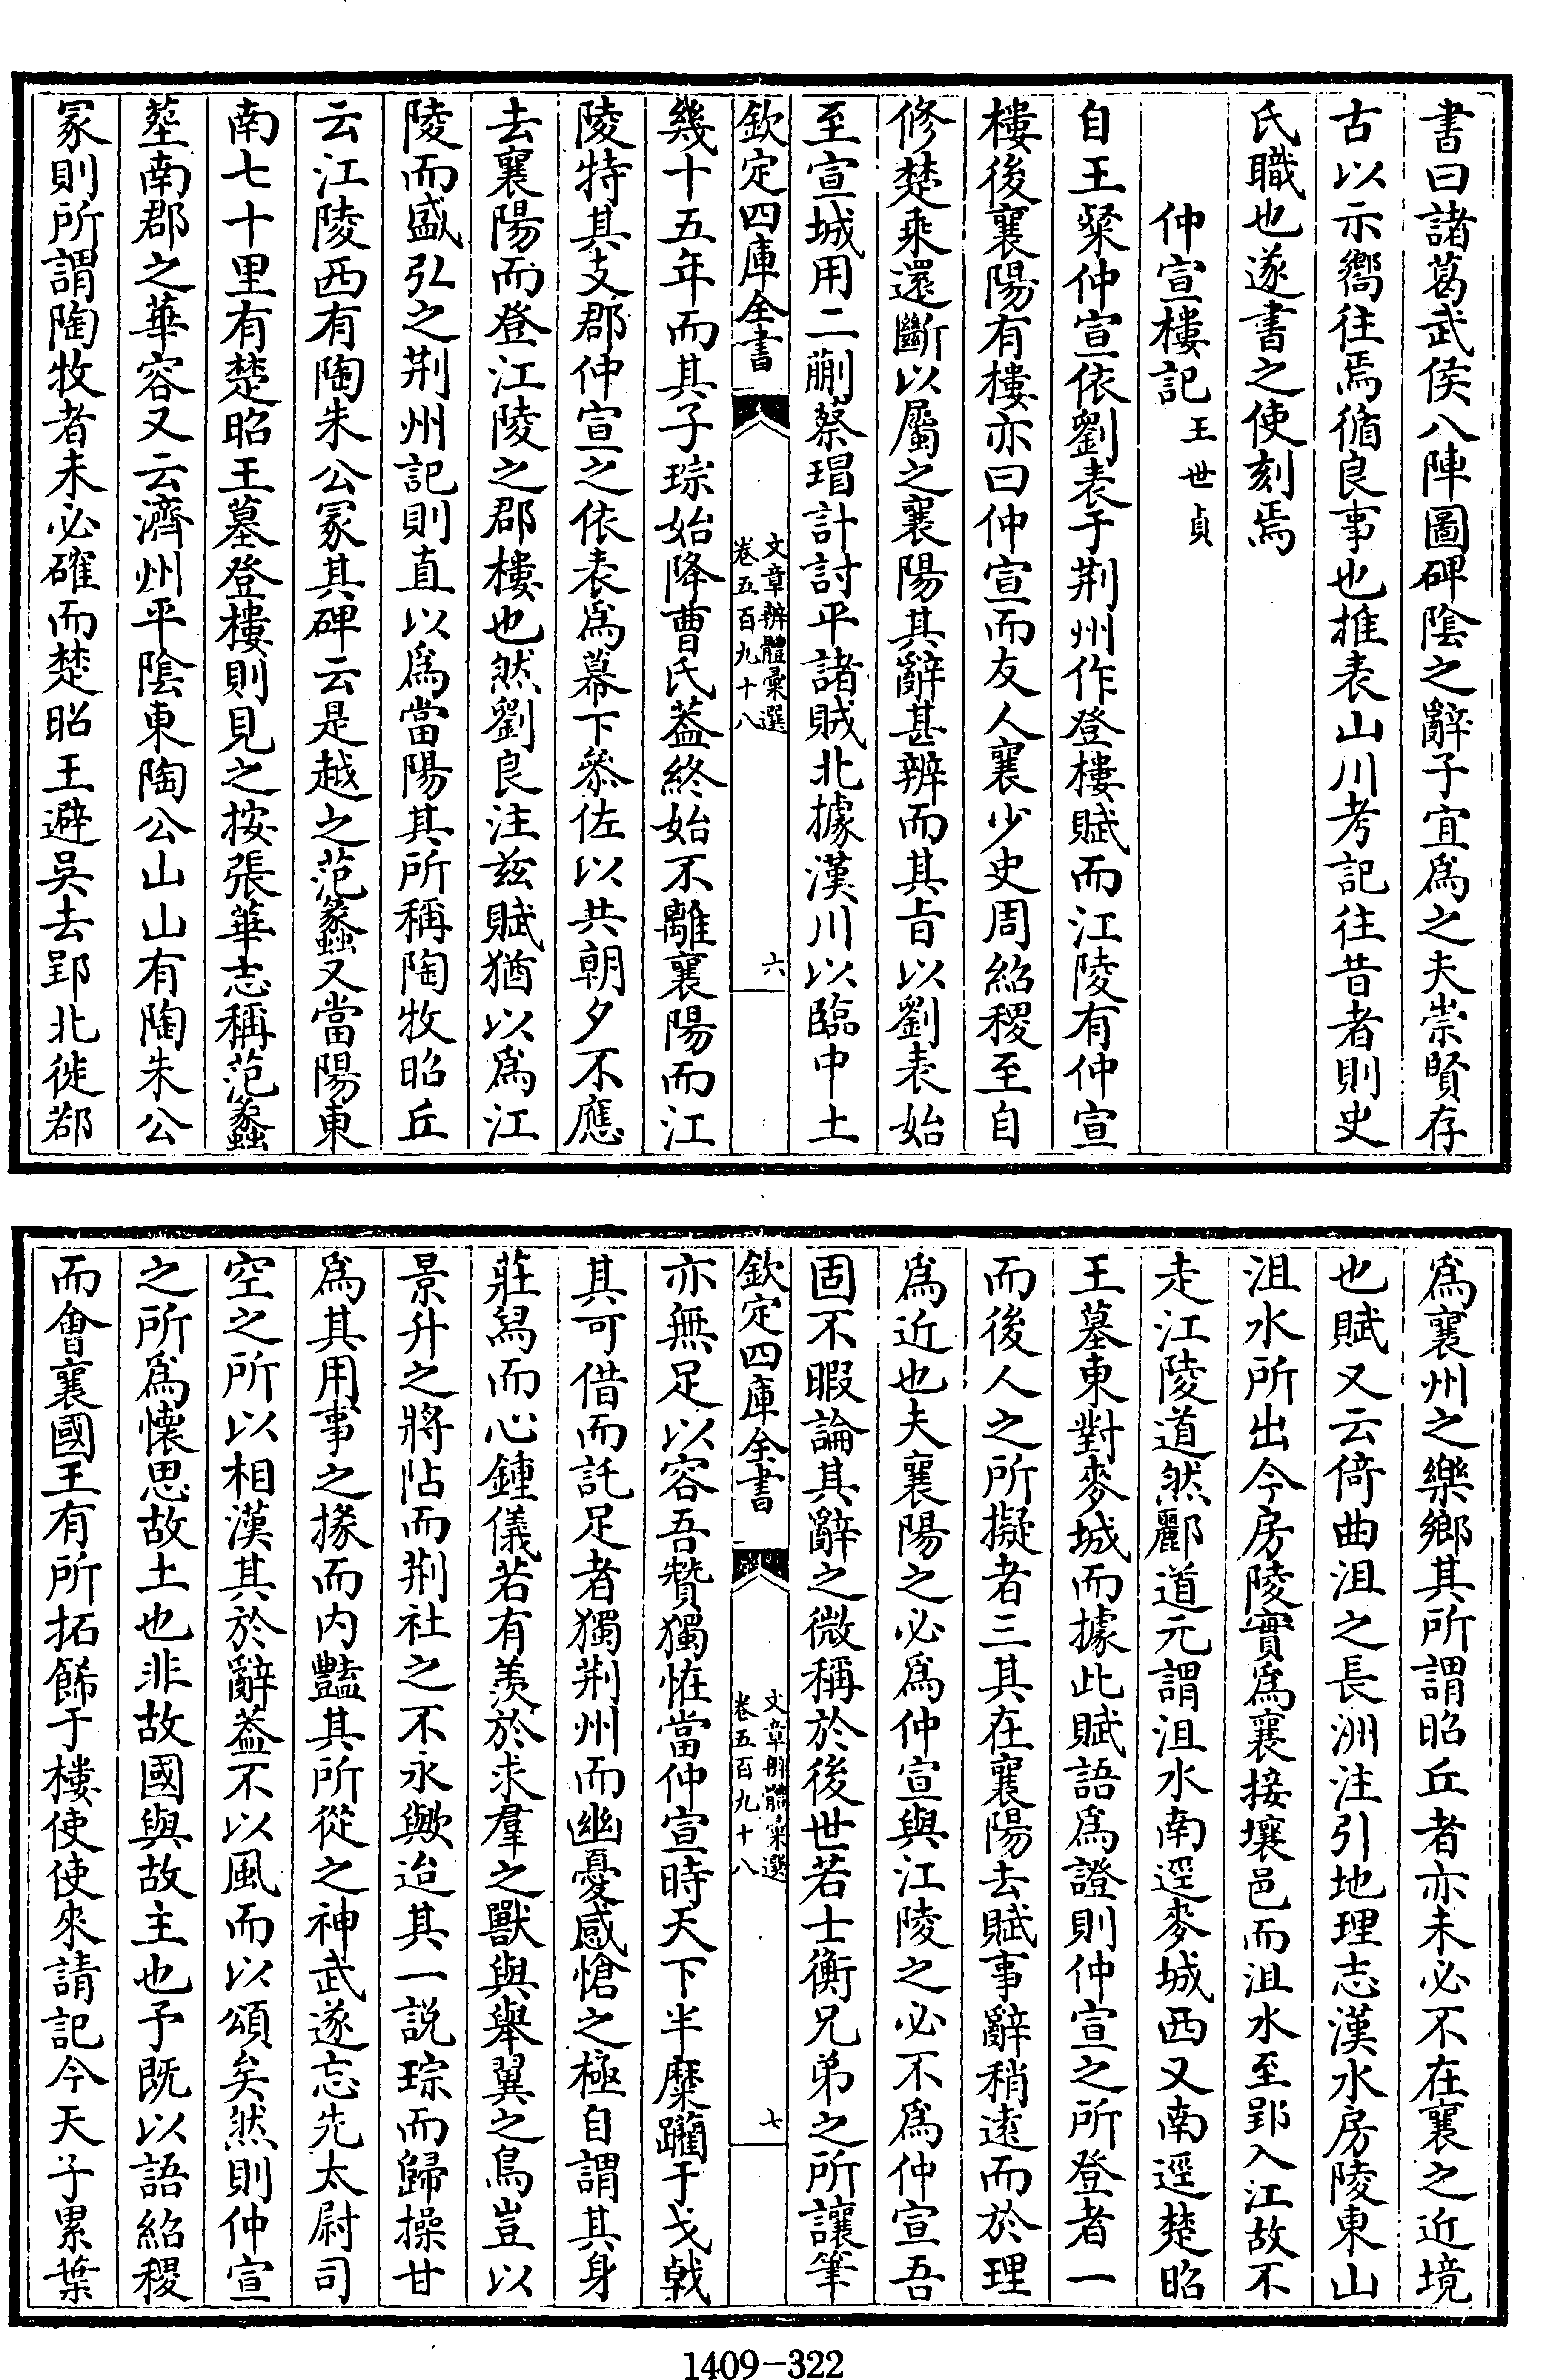 書曰諸葛武侯八陣圖碑隂之辭子宜爲之夫崇賢存
古以示嚮往焉循良事也推表山川考記往昔者則史
氏職也遂書之使刻焉
仲宣樓記 王世貞
自王粲仲宣依劉表于荆州作登樓賦而江陵有仲宣
樓後襄陽有樓亦曰仲宣而友人襄少史周紹稷至自
修楚乘還斷以屬之襄陽其辭甚辨而其㫖以劉表始
至宣城用二蒯蔡瑁計討平諸賊北據漢川以臨中土
欽定四庫全書
文章辨體彙選
卷五百九十八
六
幾十五年而其子琮始降曹氏葢終始不離襄陽而江
陵特其支郡仲宣之依表爲幕下叅佐以共朝夕不應
去襄陽而登江陵之郡樓也然劉良注兹賦猶以爲江
陵而盛弘之荆州記則直以爲當陽其所稱陶牧昭丘
云江陵西有陶朱公冢其碑云是越之范蠡又當陽東
南七十里有楚昭王墓登樓則見之按張華志稱范蠡
塟南郡之華容又云濟州平隂東陶公山山有陶朱公
冢則所謂陶牧者未必確而楚昭王避吳去郢北徙鄀
爲襄州之樂鄉其所謂昭丘者亦未必不在襄之近境
也賦又云倚曲沮之長洲注引地理志漢水房陵東山
沮水所出今房陵實爲襄接壤邑而沮水至郢入江故不
走江陵道然酈道元謂沮水南逕麥城西又南逕楚昭
王墓東對麥城而據此賦語爲證則仲宣之所登者一
而後人之所擬者三其在襄陽去賦事辭稍逺而於理
爲近也夫襄陽之必爲仲宣與江陵之必不爲仲宣吾
固不暇論其辭之微稱於後世若士衡兄弟之所讓筆
欽定四庫全書
文章辨體彙選
卷五百九十八
七
亦無足以容吾贊獨恠當仲宣時天下半糜躪于戈戟
其可借而託足者獨荆州而幽憂感愴之極自謂其身
莊舄而心鍾儀若有羨於求羣之獸與舉翼之鳥豈以
景升之將阽而荆社之不永歟迨其一説琮而歸操甘
爲其用事之掾而内豔其所從之神武遂忘先太尉司
空之所以相漢其於辭葢不以風而以頌矣然則仲宣
之所爲懷思故土也非故國與故主也予既以語紹稷
而會襄國王有所拓餙于樓使使來請記今天子累葉
1409-322